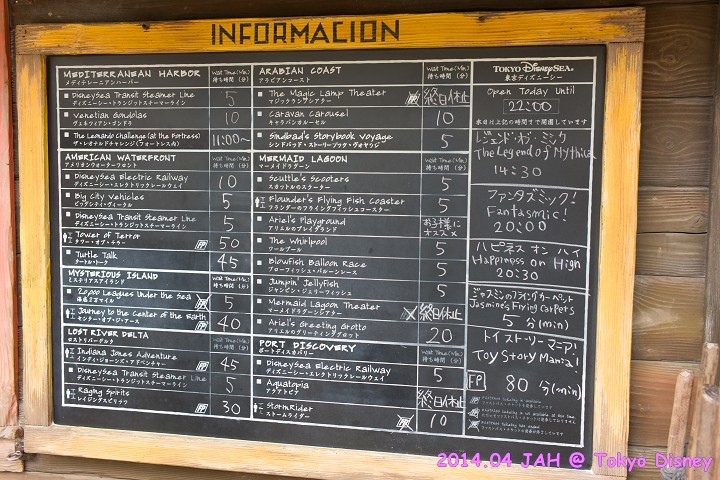 INFORMACION
MEDITERRANEAN HARBOR Wait Time (Min.)
メディテレーニアンハーバー 待ち時間 (分)
DisneySea Transit Steamer Line 5
ディズニーシー・トランジットスチーマーライン
Venetian Gondolas 10
ヴェネツィアン・ゴンドラ
The Leonardo Challenge (at the Fortress) 11:00~
ザ・レオナルドチャレンジ(フォートレス内)
AMERICAN WATERFRONT Wait Time (Min.)
アメリカンウォーターフロント 待ち時間 (分)
DisneySea Electric Railway 10
ディズニーシー・エレクトリックレールウェイ
Big City Vehicles 5
ビッグシティ・ヴィークル
DisneySea Transit Steamer Line 5
ディズニーシー・トランジットスチーマーライン
Tower of Terror FP 50
タワー・オブ・テラー
Turtle Talk 45
タートル・トーク
MYSTERIOUS ISLAND Wait Time (Min.)
ミステリアスアイランド 待ち時間 (分)
20,000 Leagues Under the Sea FP 5
海底2万マイル
Journey to the Center of the Earth FP 40
センター・オブ・ジ・アース
LOST RIVER DELTA Wait Time (Min.)
ロストリバーデルタ 待ち時間 (分)
Indiana Jones Adventure FP 45
インディ・ジョーンズ・アドベンチャー
DisneySea Transit Steamer Line 5
ディズニーシー・トランジットスチーマーライン
Raging Spirits FP 30
レイジングスピリッツ
ARABIAN COAST Wait Time (Min.)
アラビアンコースト 待ち時間 (分)
The Magic Lamp Theater FP 終日休止
マジックランプシアター
Caravan Carousel 10
キャラバンカルーセル
Sindbad's Storybook Voyage 5
シンドバッド・ストーリーブック・ヴォヤッジ
MERMAID LAGOON Wait Time (Min.)
マーメイドラグーン 待ち時間 (分)
Scuttle's Scooters 5
スカットルのスクーター
Flounder's Flying Fish Coaster 5
フランダーのフライングフィッシュコースター
Ariel's Playground お子様にオススメ
アリエルのプレイグラウンド
The Whirlpool 5
ワールプール
Blowfish Balloon Race 5
ブローフィッシュ・バルーンレース
Jumpin' Jellyfish 5
ジャンピン・ジェリーフィッシュ
Mermaid Lagoon Theater 終日休止
マーメイドラグーンシアター
Ariel's Greeting Grotto 20
アリエルのグリーティンググロット
PORT DISCOVERY Wait Time (Min.)
ポートディスカバリー 待ち時間 (分)
DisneySea Electric Railway 5
ディズニーシー・エレクトリックレールウェイ
Aquatopia 終日休止
アクアトピア
StormRider FP 10
ストームライダー
TOKYO DisneySEA.
東京ディズニーシー
Open Today Until
22:00
本日は上記の時間まで開園しています
レジェンド・オブ・ミシカ
The Legend of Mythica
14:30
ファンタズミック!
Fantasmic!
20:00
ハピネス オン ハイ
Happiness on High
20:30
ジャスミンのフライングカーペット
Jasmine's Flying Carpets
5 分(min)
トイ・ストーリー・マニア!
Toy Story Mania!
FP 80 分(min)
2014.04 JAH @ Tokyo Disney